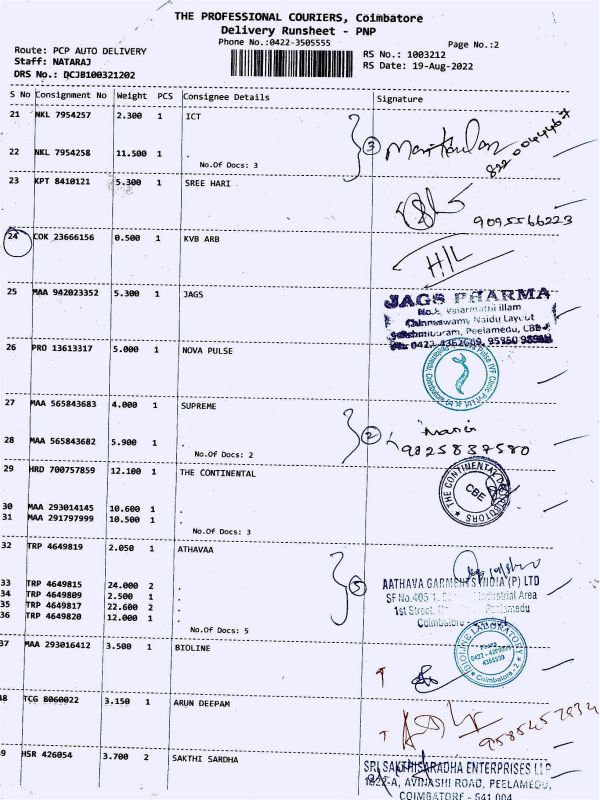 THE PROFESSIONAL COURIERS, Coimbatore
Delivery Runsheet - PNP
Phone No.:0422-3505555
Page No.:2
Route: PCP AUTO DELIVERY
Staff: NATARAJ
DRS No.: DCJB100321202
RS No.: 1003212
RS Date: 19-Aug-2022
S No Consignment No Weight PCS Consignee Details Signature
21 NKL 7954257 2.300 1 ICT
22 NKL 7954258 11.500 1 .
No.Of Docs: 3
3
23 KPT 8410121 5.300 1 SREE HARI
9095566223
24 COK 23666156 0.500 1 KVB ARB
H/L
25 MAA 942023352 5.300 1 JAGS
JAGS PHARMA
Valarmathi Illam
Chinnaswamy Naidu Layout
Peelamedu, CBE
26 PRO 13613317 5.000 1 NOVA PULSE
Pulse IVF Clinic
27 MAA 565843683 4.000 1 SUPREME
28 MAA 565843682 5.900 1 .
No.Of Docs: 2
2
9025837580
29 HRD 700757859 12.100 1 THE CONTINENTAL
THE CONTINENTAL DISTRIBUTORS
CBE
30 MAA 293014145 10.600 1 .
31 MAA 291797999 10.500 1 .
No.Of Docs: 3
32 TRP 4649819 2.050 1 ATHAVAA
33 TRP 4649815 24.000 2 .
34 TRP 4649809 2.500 1 .
35 TRP 4649817 22.600 2 .
36 TRP 4649820 12.000 1 .
No.Of Docs: 5
5
AATHAVA GARMENTS INDIA (P) LTD
SF No.405 Industrial Area
1st Street, Peelamedu
Coimbatore -
37 MAA 293016412 3.500 1 BIOLINE
BIOLINE LABORATORY
Coimbatore - 2
48 TCG 8060022 3.150 1 ARUN DEEPAM
9585457934
HSR 426054 3.700 2 SAKTHI SARDHA
SRI SAKTHISARADHA ENTERPRISES LLP
1822-A, AVINASHI ROAD, PEELAMEDU,
COIMBATORE - 641 004